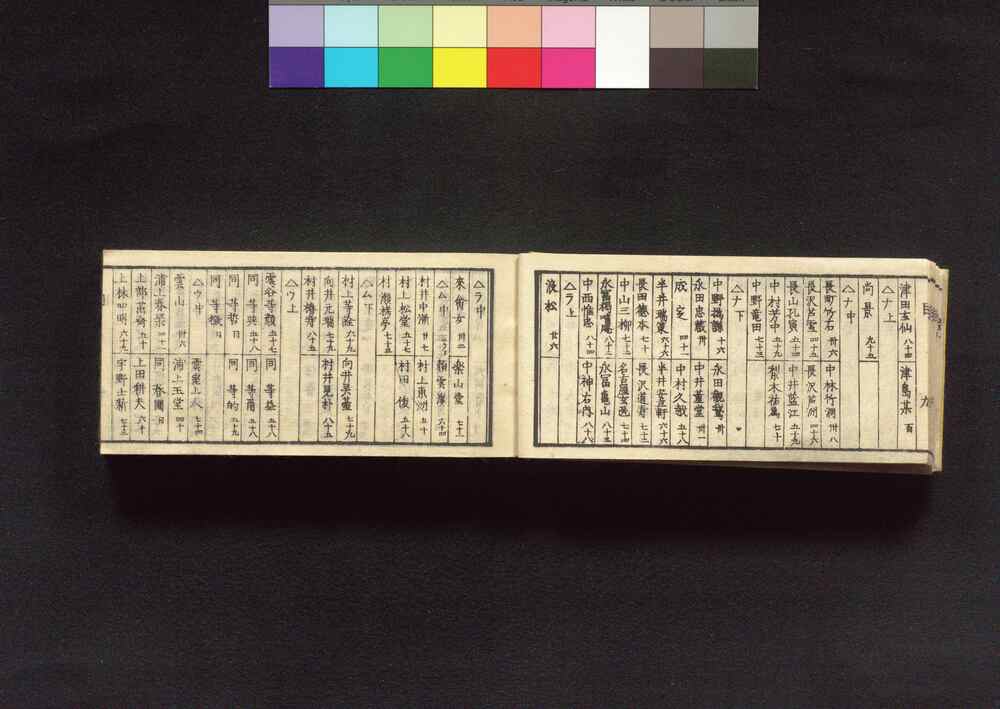 津田玄仙 八十四 津島某 百
△ナ上
尚景 九十五
△ナ中
長町竹石 卅六 中林竹洞 卅八
長沢芦雪 四十五 長沢芦州 四十六
長山孔寅 五十四 中井藍江 五十九
中村芳中 五十九 梨木祐為 七十
中野龍田 七十三
△ナ下
中野撝謙 十六 永田観鵞 卅
永田忠蔵 卅 中井董堂 卅一
成之 四十一 中村久哉 五十八
半井瑞策 六十六 半井安立軒 六十六
長田徳本 七十 長沢道寿 七十三
中山三柳 七十三 名古屋玄医 七十四
永富独嘯庵 八十三 永冨亀山 八十三
中西惟忠 八十四 中神右内 八十八
△ラ上
浪松 廿六
△ラ中
来禽女 卅二 楽山堂 七十一
△ム中
村井中漸 廿七 村上東洲 五十
村上松堂 五十七 村田俊 五十八
村瀬栲亭 七十五
△ム下
村上等詮 六十九 向井元升 七十九
向井元瑞 七十九 村井見朴 八十五
村井椿寿 八十五
△ウ上
雲谷等顔 五十七 同等益 五十八
同等與 五十八 同等爾 五十八
同等哲 日 同等的 五十九
同等 日
△ウ中 雲室上人 七十四
雲山 卅八 浦上玉堂 四十
浦上春琴 四十一 同春圃 日
上部茁斎 五十 上田耕夫 六十
上林四明 六十六 宇野士新 七十三